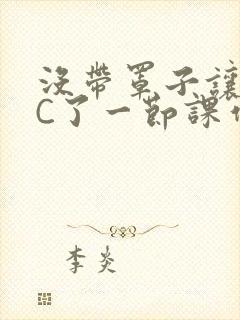 沒帶罩子讓
C了一節課
李炎